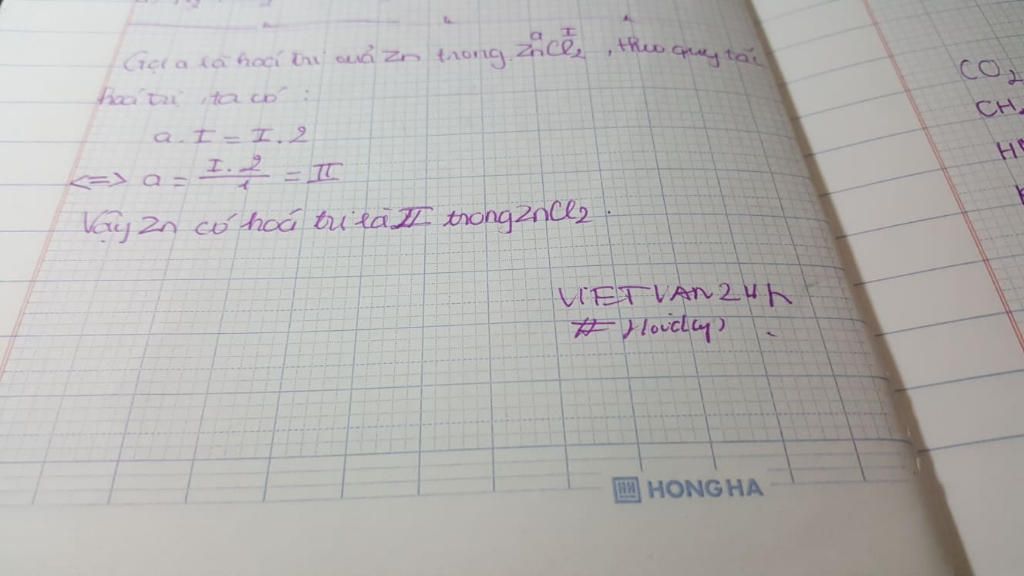 Gọi a là hoá trị của Zn trong ZnCl2, theo quy tắc
a I
hoá trị, ta có :
a . I = I . 2
<=> a = I . 2 / 1 = II
Vậy Zn có hoá trị là II trong ZnCl2.
VIETVAN24h
CO2
HONG HA